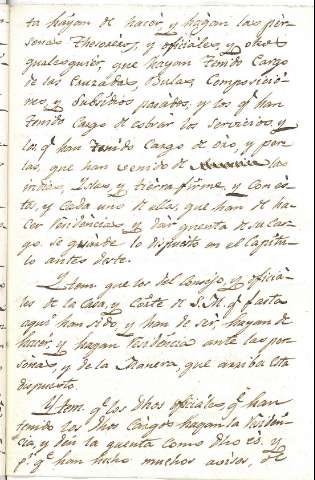 ta hayan de hacer, y hagan las per-
sonas Thesoreros, y oficiales, y otros
qualesquier, que hayan tenido Cargo
de las Cruzadas, Bulas, Composicio-
nes, y Subsidios pasados, y los q.e han
tenido Cargo de cobrar los Servicios, y
los q.e han tenido Cargo de oro, y per-
las, que han venido de las
indias, Yslas, y tierra firme, y con es-
tos, y cada uno de ellos, que han de ha-
cer Residencias, y dar quenta de su car-
go. se guarde lo dispuesto en el Capitu-
lo antes deste.
Ytem. que los del Consejo, y oficia-
les de la Casa, y Corte de S. M. q.e fasta
aqui han sido, y han de ser, hayan de
hacer, y hagan Residencia ante las per-
sonas, y de la Manera, que arriba esta
dispuesto.
Ytem. q.e los dhos oficiales, q.e han
tenido los dhos Cargos hagan la Residen-
cia, y den la quenta como dho es. y
p.r q.e han hecho muchos avisos, de